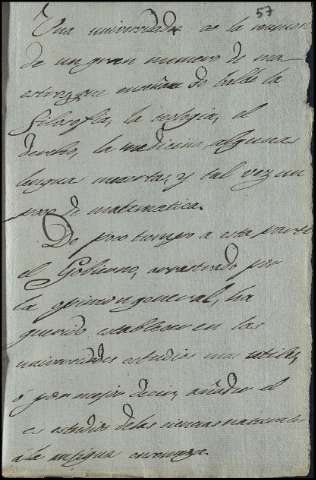 57
Una universidad es la reunion
de un gran numero de ma-
estros que enseñan de balde la
filosofia, la teologia, el
derecho, la medicina, alguna
lengua muerta, y tal vez un
poco de matematica.
De poco tiempo a esta parte
el Gobierno, arrastrado por
la opinion general, ha
querido establecer en las
universidades estudios mas utiles,
ó por mejor decir, añadir el
estudio de las ciencias naturales
a la antigua enseñanza.